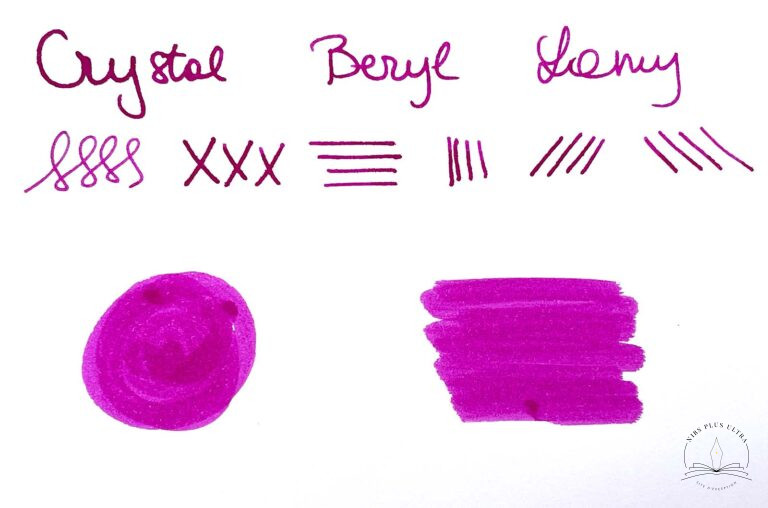 Crystal Beryl Lamy
XXX
NIBS PLUS ULTRA